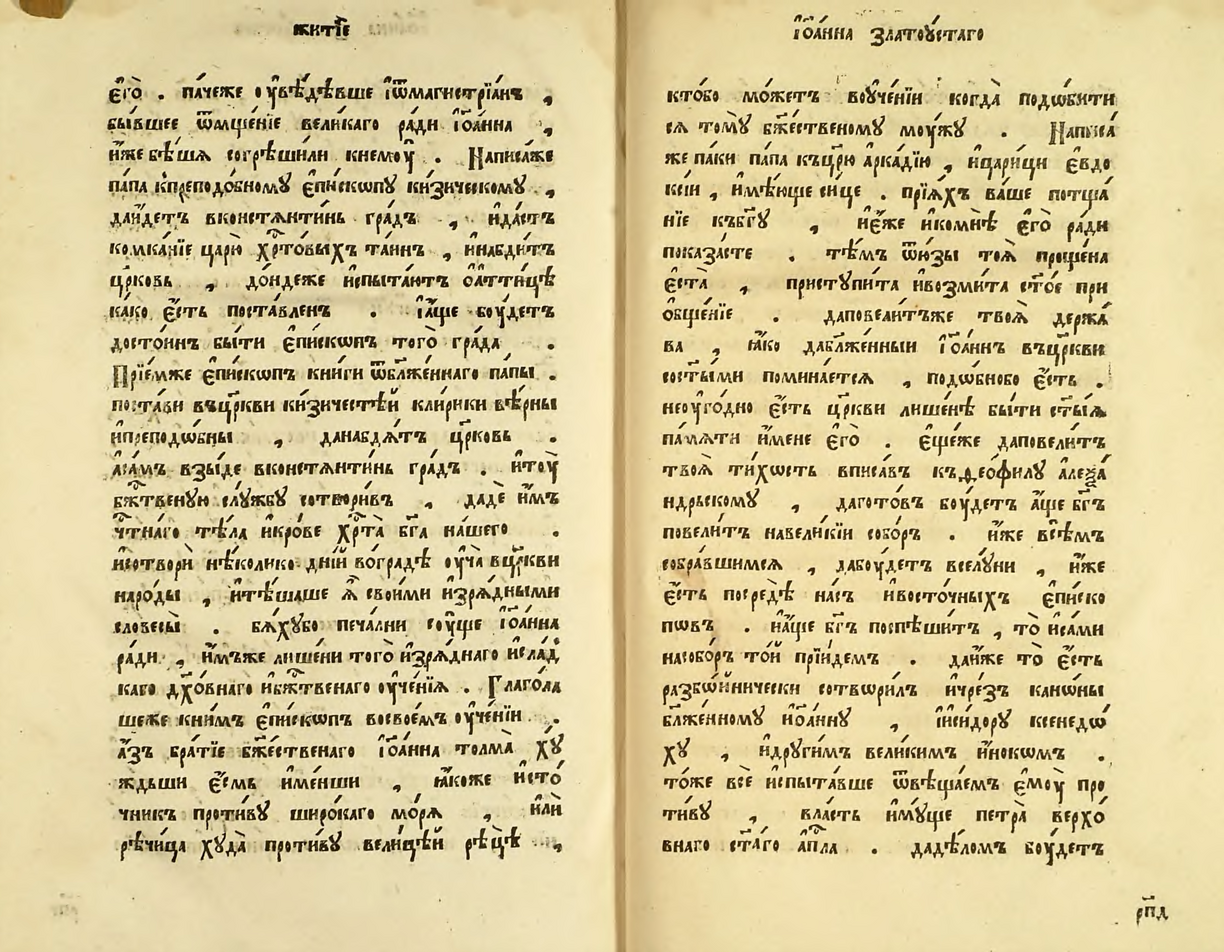 житїе
єго̀ . па́чеже оу҆вѣ́дѣвше ѿмагистрїа́нъ ,
бы́вшее ѿмще́нїе вели́каго ра́ди їѡ҆а́нна ,
и҆́же бѣ́ша согрѣши́ли кнемоу̀ . Написа́же
па́па кпреподо́бному є҆пи́скопꙋ ки́зическомꙋ ,
да и҆́детъ вконстѧнти́нь гра́дъ , и҆да́стъ
комка́нїе царю̀ хрⷭ҇то́выхъ та́инъ , и҆набди́тъ
цр҃ковь , до́ндеже и҆спыта́ютъ о҆а҆ттицѣ
ка́ко є҆́сть поста́вленъ . і҆а҆́ще боу́детъ
досто́инъ бы́ти є҆пи́скопъ того̀ гра́да .
Прїе́мже є҆пи́скопъ кни́ги ѿбл҃же́ннаго па́пы .
поста́ви въцр҃кви ки́зичестѣй кли́рики вѣ́рны
и҆преподѡ́бны , данабдѧ́тъ цр҃ковь .
аса́мъ взы́де вконстѧнти́нь гра́дъ . и҆тоу̀
бж҃твеную слꙋ́жбꙋ сотвори́въ , дадѐ и҆̀мъ
чтⷭ҇на́го тѣ́ла и҆кро́ве хрⷭ҇та̀ бг҃а на́шего .
и҆сотворѝ нѣ́колико дні́й во́градѣ оу҆ча̀ вцр҃кви
наро́ды , и҆тѣ́шаше ѧ҆̀ свои́ми и҆зрѧ́дными
словесы̀ . бѧ́хꙋбо печа́лни соу́ще їѡ҆а́нна
ра́ди , и҆́мъже лише́ни того̀ и҆зрѧ́днаго и҆сла́д
каго дх҃о́внаго и҆бж҃твенаго оу҆че́нїѧ . Глаго́ла
шеже кни́мъ є҆пи́скопъ восвое́мъ оу҆че́нїи .
а҆́зъ бра́тїе бж҃е́ственаго їѡ҆а́нна толма̀ хꙋ́
ждьши є҆́смь и҆ме́нши , ꙗ҆́коже и҆сто́
чникъ проти́вꙋ широ́каго мо́рѧ , и҆лѝ
рѣ́чица хꙋда̀ проти́вꙋ вели́цѣй рѣ́цѣ ,
їѡ҆а́нна златоꙋ́стаго
кто́бо мо́жетъ воу҆че́нїи когда̀ подѡ́бити
сѧ томꙋ̀ бж҃е́ственомꙋ моу́жꙋ . Написа́
же па́ки па́па къцр҃ю̀ а҆рка́дїю , и҆цари́ци є҆вдо
ксі́и , и҆мѣ́юще си́це . прїѧ́хъ ва́ше потща́
нїе къбг҃ꙋ , и҆є҆́же и҆комнѣ̀ є҆го̀ ра́ди
показа́сте . тѣ́мъ ѿю҆́зы тоѧ̀ проще́на
є҆ста̀ , приступи́та и҆возми́та ст҃о́е при
ѻ҆бще́нїе . даповели́тъже твоѧ̀ держа́
ва , ꙗ҆́ко дабл҃же́нныи їѡ҆а́ннъ въцр҃кви
состы́ми помина́етсѧ , подѡ́бнобо є҆́сть .
неоу҆го́дно є҆́сть цр҃кви лише́нѣ бы́ти ст҃ы́ѧ
па́мѧти и҆́мене є҆го̀ . є҆ще́же даповели́тъ
твоѧ̀ ти́хость вписа́въ къѳео́филꙋ а҆леѯа́
ндрьскомꙋ , даготѡ́въ боу́детъ а҆́ще бг҃ъ
повели́тъ навели́кїи собо́ръ . и҆́же всѣ́мъ
собра́вшимсѧ , дабоу́детъ вселꙋ́ни , и҆́же
є҆́сть посредѣ̀ на́съ и҆восто́чныхъ є҆пи́ско
пѡвъ . и҆а҆́ще бг҃ъ поспѣши́тъ , то̀ и҆са́ми
насобо́ръ то́й прїи́демъ . да и҆́же то̀ є҆́сть
разбо́йнически сотвори́лъ и҆чре́зъ канѡ́ны
бл҃же́нномꙋ и҆ѡ҆а́ннꙋ , і҆и҆си́дорꙋ ксенедѡ́
хꙋ , и҆други́мъ вели́кимъ и҆́нокѡмъ .
то́же всѐ и҆спыта́вше ѿвѣща́емъ є҆моу̀ про
ти́вꙋ , вла́сть и҆мꙋ́ще петра̀ верхо́
внаго ст҃а́го а҆пⷭ҇ла . дадѣ́ломъ боу́детъ
рп҃д